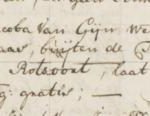 coba Van Gijn We
aar, buijten de
Rotsoort, laat
g: gratis; —